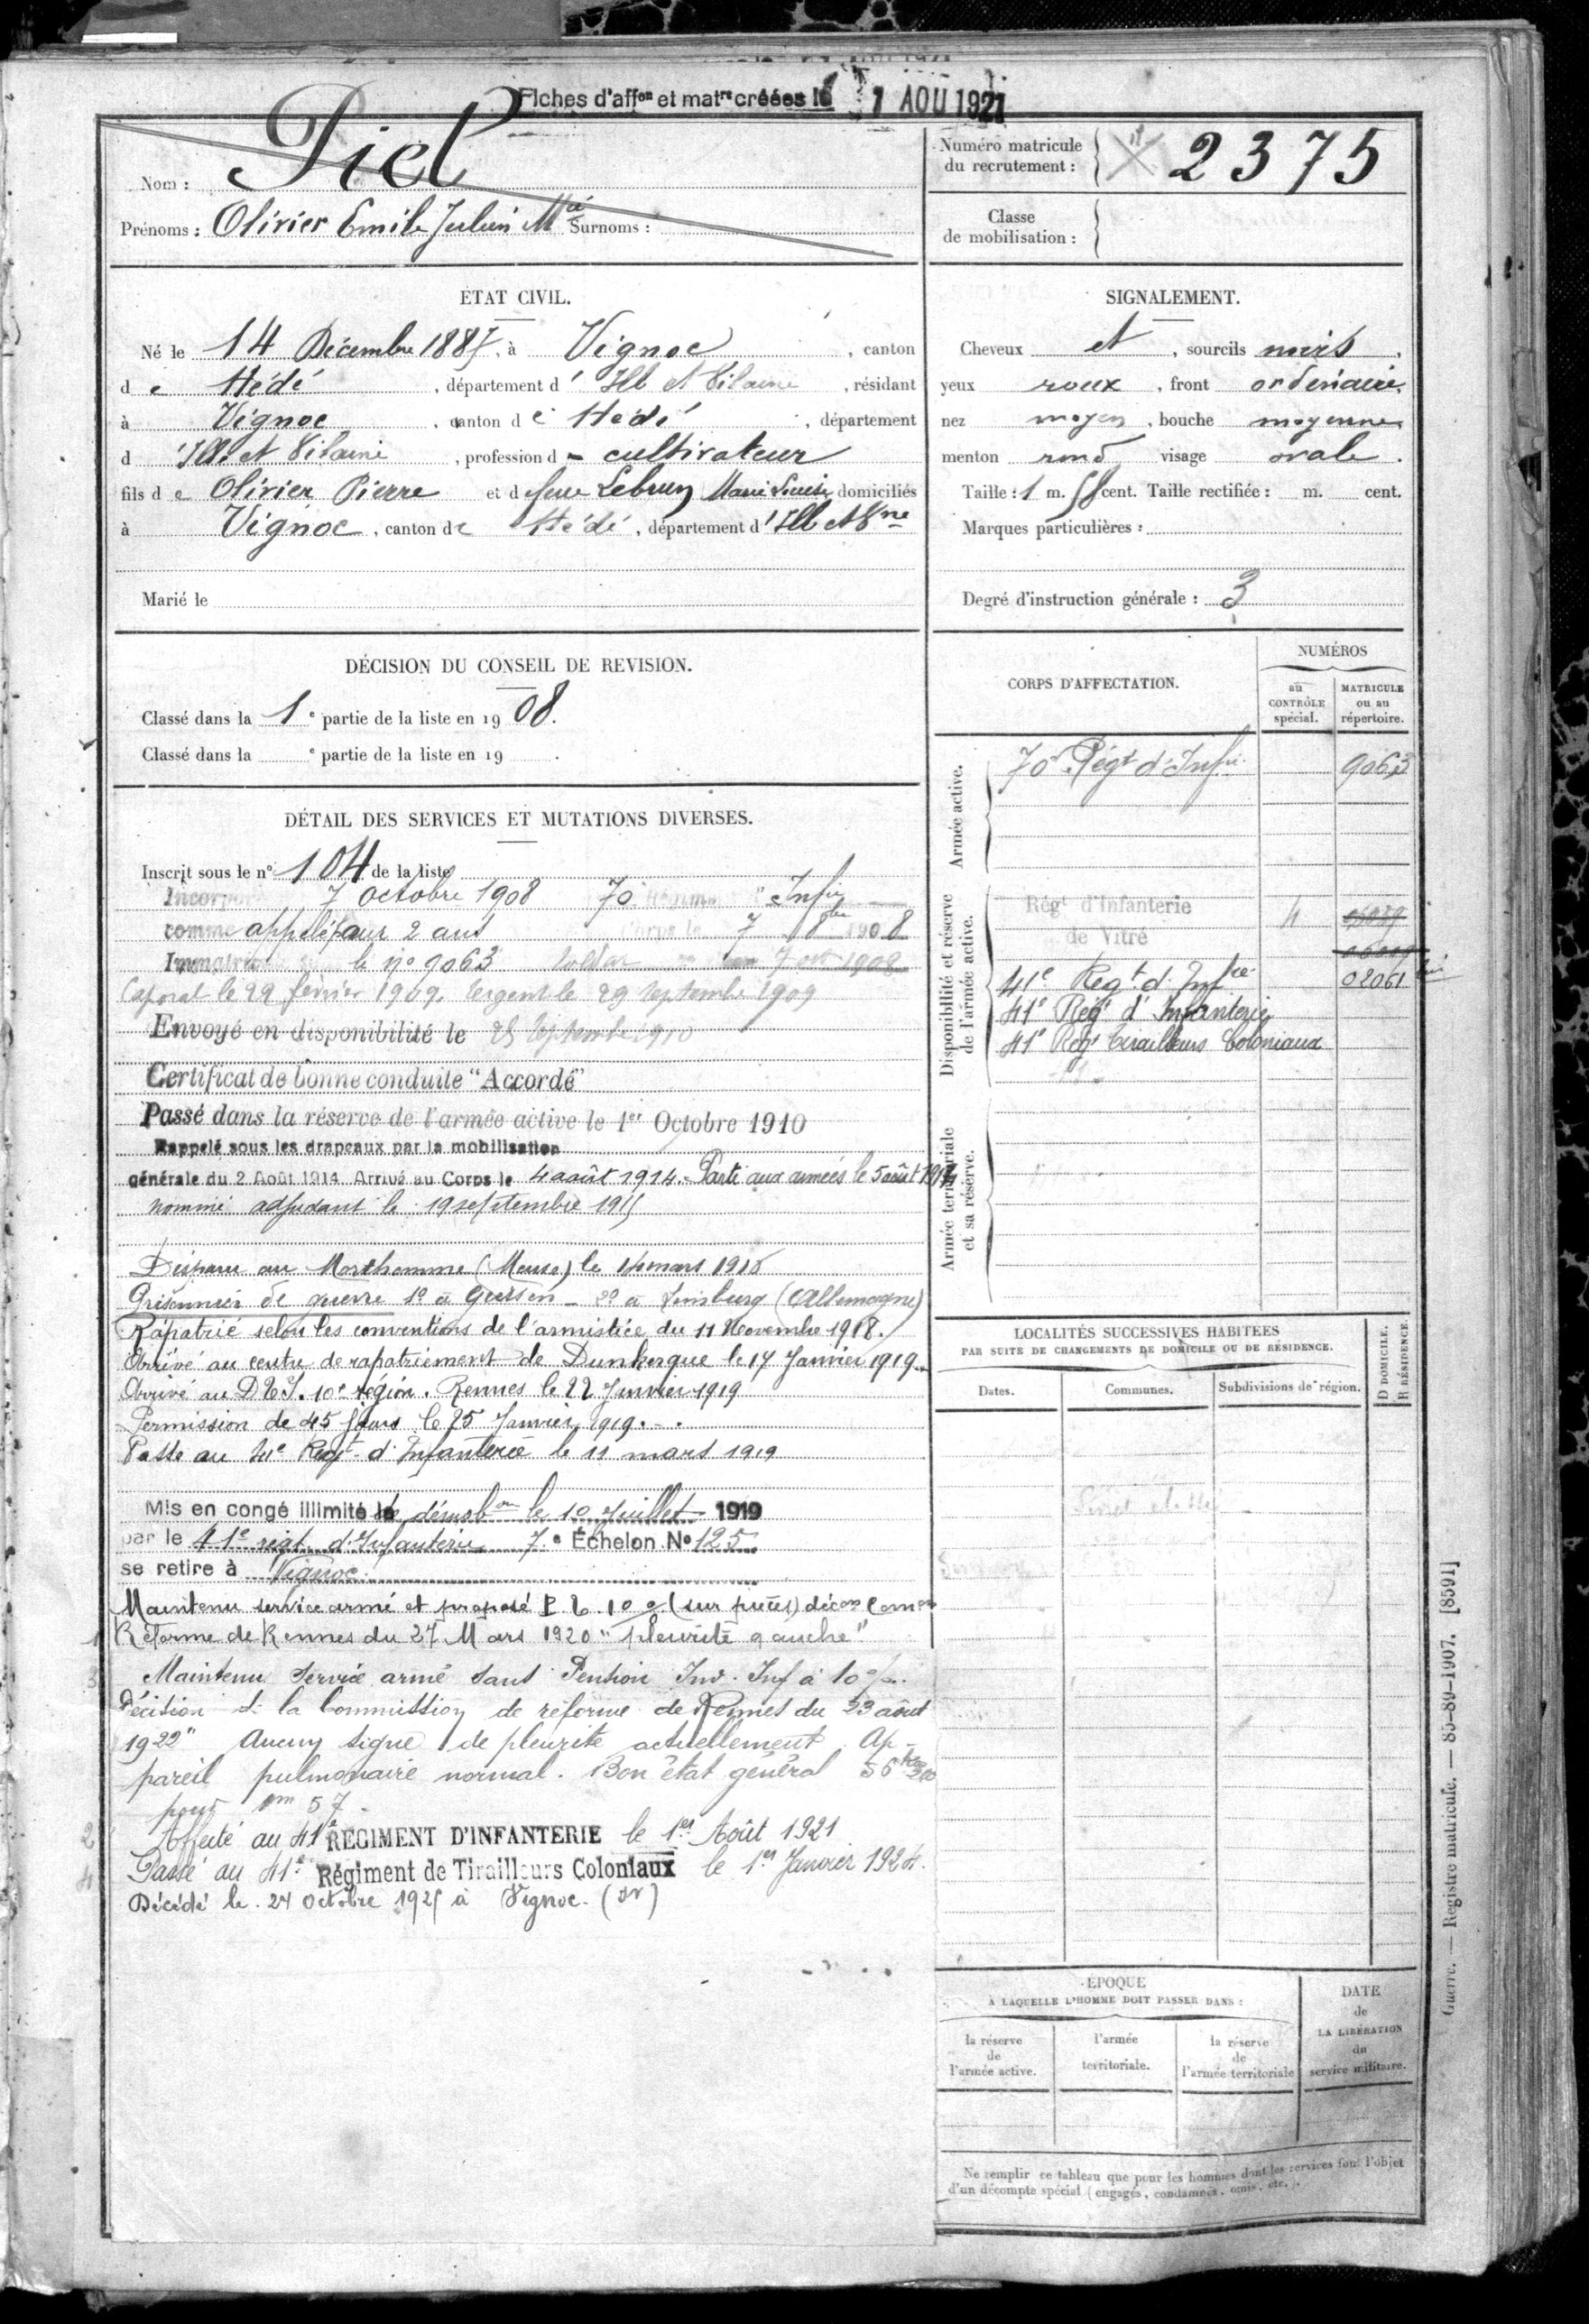 Fiches d'affon et matre créées le 1 AOU 1921
Nom : Piel
Prénoms : Olivier Emile Julien Mie Surnoms :
Numéro matricule du recrutement : 2375
Classe de mobilisation :
ÉTAT CIVIL.
Né le 14 Décembre 1887, à Vignoc, canton
de Hédé, département d'Ille et Vilaine, résidant
à Vignoc, canton de Hédé, département
d'Ille et Vilaine, profession d - cultivateur
fils de Olivier Pierre et d feue Lebrun Marie Louise domiciliés
à Vignoc, canton de Hédé, département d'Ill et Vne
Marié le
SIGNALEMENT.
Cheveux et, sourcils noirs,
yeux roux, front ordinaire,
nez moyen, bouche moyenne,
menton rond visage ovale.
Taille : 1 m. 58 cent. Taille rectifiée : m. cent.
Marques particulières :
Degré d'instruction générale : 3
DÉCISION DU CONSEIL DE REVISION.
Classé dans la 1e partie de la liste en 1908.
Classé dans la e partie de la liste en 19 .
DÉTAIL DES SERVICES ET MUTATIONS DIVERSES.
Inscrit sous le n° 104 de la liste
7 octobre 1908 70 Infie
comme appelé pour 2 ans Corps le 7 8bre 1908
le no 9063 soldat 7 oct 1908
Caporal le 22 février 1909. Sergent le 29 septembre 1909
Envoyé en disponibilité le 25 septembre 1910
Certificat de bonne conduite "Accordé"
Passé dans la réserve de l'armée active le 1er Octobre 1910
Rappelé sous les drapeaux par la mobilisation
générale du 2 Août 1914 Arrivé au Corps le 4 août 1914. Parti aux armées le 5 août 1914
nommé adjudant le 19 septembre 1915
Disparu au Morthomme (Meuse) le 14 mars 1916
Prisonnier de guerre 1° à - 2° à (Allemagne)
Rapatrié selon les conventions de l'armistice du 11 Novembre 1918.
Arrivé au centre de rapatriement de Dunkerque le 17 Janvier 1919.
Arrivé au 10e région. Rennes le 22 Janvier 1919
Permission de 45 jours le 25 Janvier 1919.
Passé au 41e Regt d'Infanterie le 11 mars 1919
Mis en congé illimité de démobon le 10 Juillet 1919
par le 41e régt d'Infanterie 7e Échelon No 125
se retire à Vignoc
Maintenu service armé et proposé P. T. 10 % (sur pièces) décon Comon
Réforme de Rennes du 27 Mars 1920 "pleurite gauche"
Maintenu service armé sans Pension Inv. Inf à 10 %.
Décision de la Commission de réforme de Rennes du 23 août
1922" Aucun signe de pleurite actuellement. Ap-
pareil pulmonaire normal. Bon état général 56 kgs 200
pour 1m 57.
Affecté au 41e RÉGIMENT D'INFANTERIE le 1er Août 1921
Passé au 41e Régiment de Tirailleurs Coloniaux le 1er Janvier 1924.
Décédé le 24 octobre 1925 à Vignoc.
CORPS D'AFFECTATION.
NUMÉROS
au CONTRÔLE spécial.
MATRICULE ou au répertoire.
Armée active.
70e Régt d'Infie 9063
Disponibilité et réserve de l'armée active.
Régt d'Infanterie
de Vitré
41e Regt d'Infie 02061
41e Régt d'Infanterie
41e Régt Tirailleurs Coloniaux
Armée territoriale et sa réserve.
LOCALITÉS SUCCESSIVES HABITÉES
PAR SUITE DE CHANGEMENTS DE DOMICILE OU DE RÉSIDENCE.
Dates.
Communes.
Subdivisions de région.
D DOMICILE.
R RÉSIDENCE.
ÉPOQUE
À LAQUELLE L'HOMME DOIT PASSER DANS :
la réserve de l'armée active.
l'armée territoriale.
la réserve de l'armée territoriale
DATE de LA LIBÉRATION du service militaire.
Ne remplir ce tableau que pour les hommes dont les services font l'objet
d'un décompte spécial (engagés, condamnés, omis, etc.).
Guerre. — Registre matricule. — 85-89-1907. [8591]